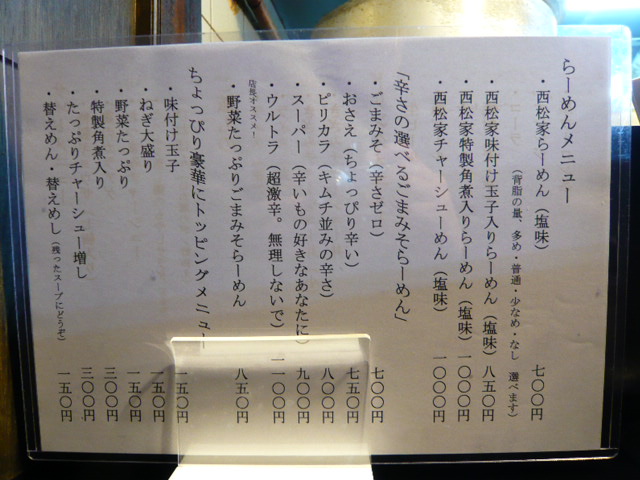 らーめんメニュー
・西松家らーめん（塩味） 七〇〇円
（背脂の量、多め・普通・少なめ・なし 選べます）
・西松家味付け玉子入りらーめん（塩味） 八五〇円
・西松家特製角煮入りらーめん（塩味） 一〇〇〇円
・西松家チャーシューめん（塩味） 一〇〇〇円
「辛さの選べるごまみそらーめん」
・ごまみそ（辛さゼロ） 七〇〇円
・おさえ（ちょっぴり辛い） 七五〇円
・ピリカラ（キムチ並みの辛さ） 八〇〇円
・スーパー（辛いもの好きなあなたに） 九〇〇円
・ウルトラ（超激辛。無理しないで） 一一〇〇円
店長オススメー
・野菜たっぷりごまみそらーめん 八五〇円
ちょっぴり豪華にトッピングメニュー
・味付け玉子 一五〇円
・ねぎ大盛り 一五〇円
・野菜たっぷり 一五〇円
・特製角煮入り 三〇〇円
・たっぷりチャーシュー増し 三〇〇円
・替えめん・替えめし（残ったスープにどうぞ） 一五〇円